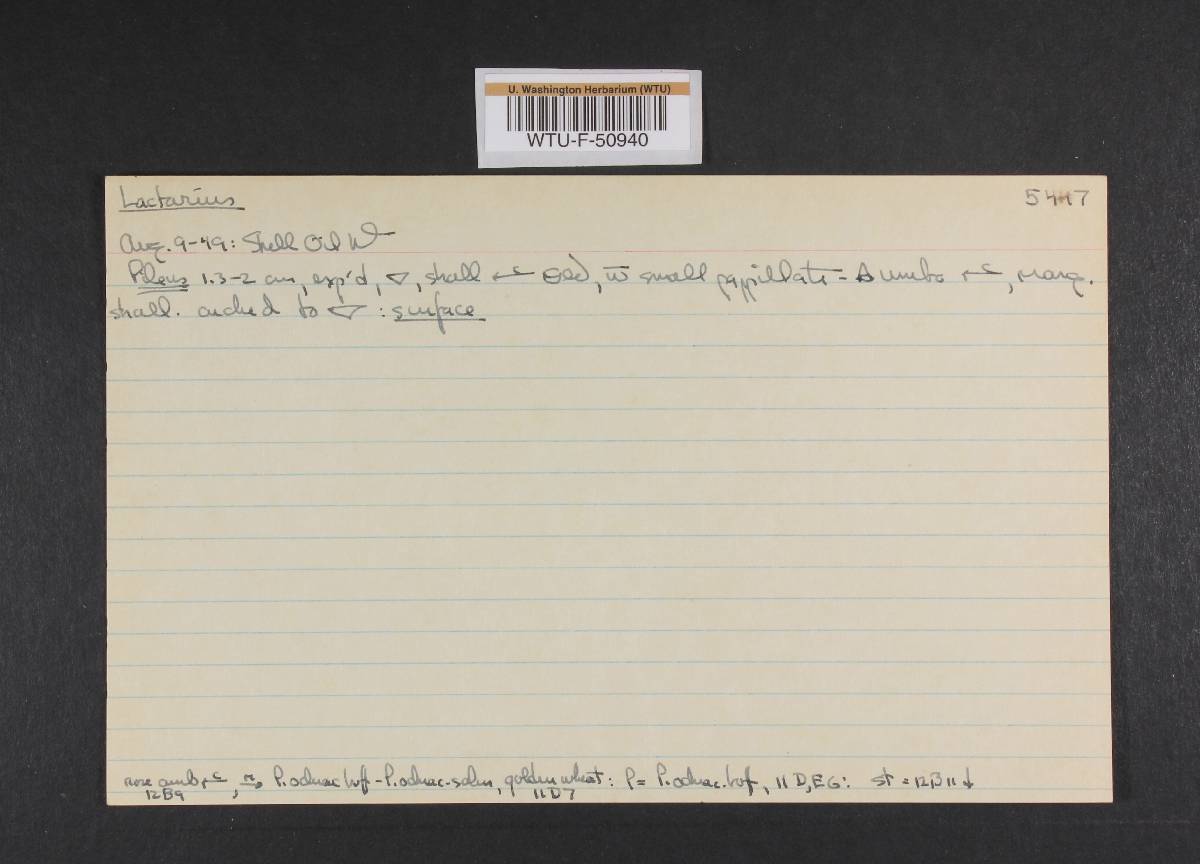 U. Washington Herbarium (WTU)
WTU-F-50940
Lactarius 5447
Aug. 9-49: Shell Oil
Pileus 1.3-2 cm, exp'd, ▽, shall w̄ small pappillate - umbo, marg.
shall. arched to ▽ : surface
P. ochrac. buf - P. ochrac-salm, golden wheat: P = P. ochrac. buf, 11 D,E6: st = 12B11 ↓
12B9 11D7